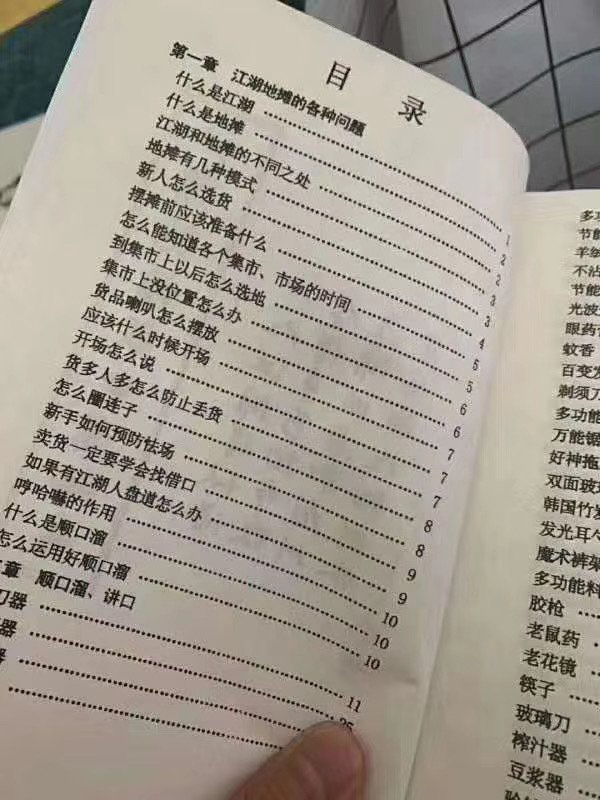 目 录
第一章 江湖地摊的各种问题
什么是江湖 …… 1
什么是地摊 …… 2
江湖和地摊的不同之处 …… 2
地摊有几种模式 …… 3
新人怎么选货 …… 3
摆摊前应该准备什么 …… 4
怎么能知道各个集市、市场的时间 …… 5
到集市上以后怎么选地 …… 5
集市上没位置怎么办 …… 6
货品喇叭怎么摆放 …… 6
应该什么时候开场 …… 7
开场怎么说 …… 7
货多人多怎么防止丢货 …… 7
怎么圈连子 …… 8
新手如何预防怯场 …… 8
卖货一定要学会找借口 …… 9
如果有江湖人盘道怎么办 …… 9
哼哈嗨的作用 …… 10
什么是顺口溜 …… 10
怎么运用好顺口溜 …… 10
章 顺口溜、讲口
刀器 …… 11
器 …… 25
器 ……
多功
节能
羊绒
不沾
节能
光波
眼药
蚊香
百变发
剃须刀
多功能
万能锯
好神拖
双面玻
韩国竹炭
发光耳勺
魔术裤架
多功能料
胶枪 ……
老鼠药 ……
老花镜 ……
筷子 ……
玻璃刀 ……
榨汁器 ……
豆浆器 ……